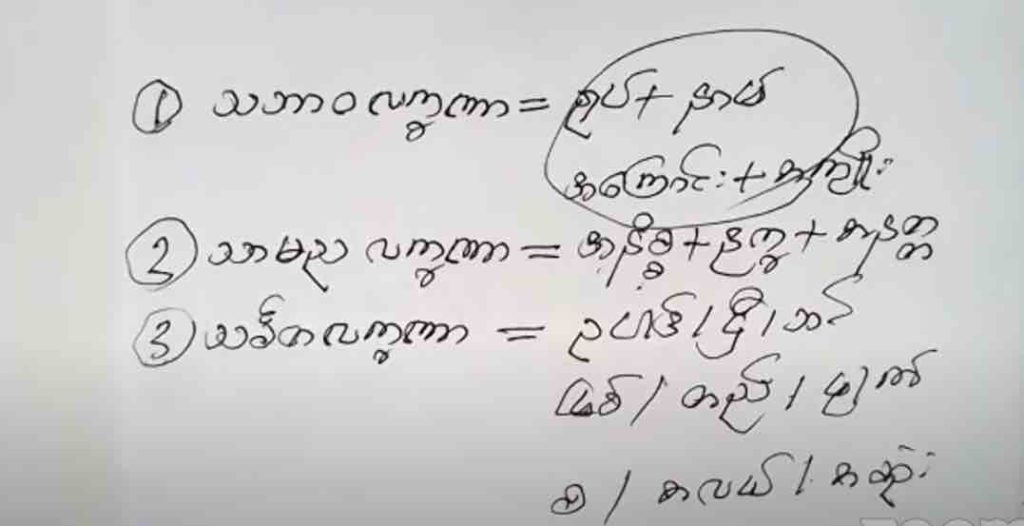 ① သဘာဝ လက္ခဏာ = ရုပ် + နာမ်
အကြောင်း + အကျိုး
② သာမည လက္ခဏာ = အနိစ္စ + ဒုက္ခ + အနတ္တ
③ သင်္ခတလက္ခဏာ = ဥပါဒ် / ဌီ / ဘင်
ဖြစ် / တည် / ပျက်
စ / အလယ် / အဆုံး
zoom